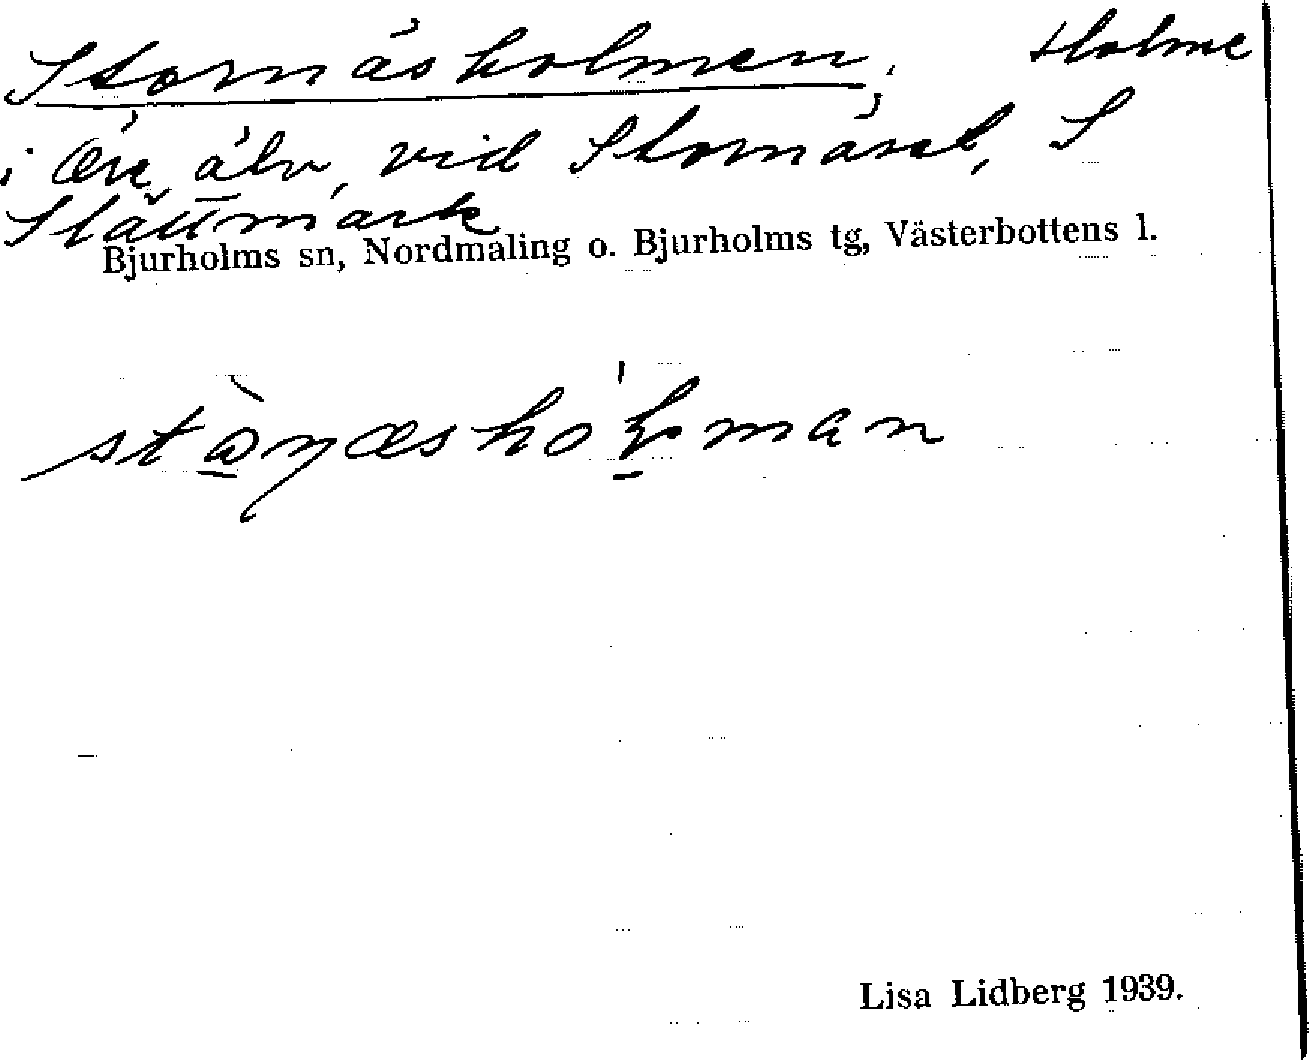 Stornäsholmen, Holme
i Öre älv, vid Stornäset, S
Slättmark
Bjurholms sn, Nordmaling o. Bjurholms tg, Västerbottens l.
Lisa Lidberg 1939.